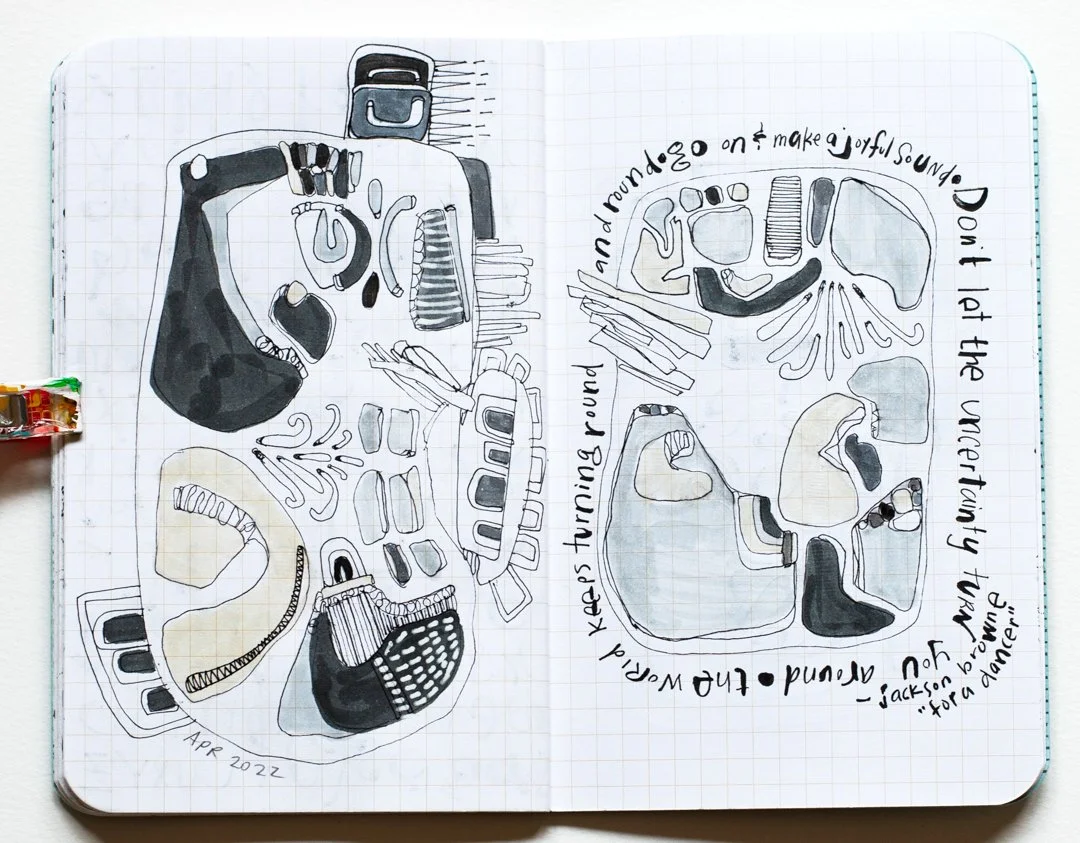 APR 2022
Don't let the uncertainty tuRN
you
around • the woRld
keeps turning round
and round • go on & make a joyful sound •
- jackson browne
"for a dancer"